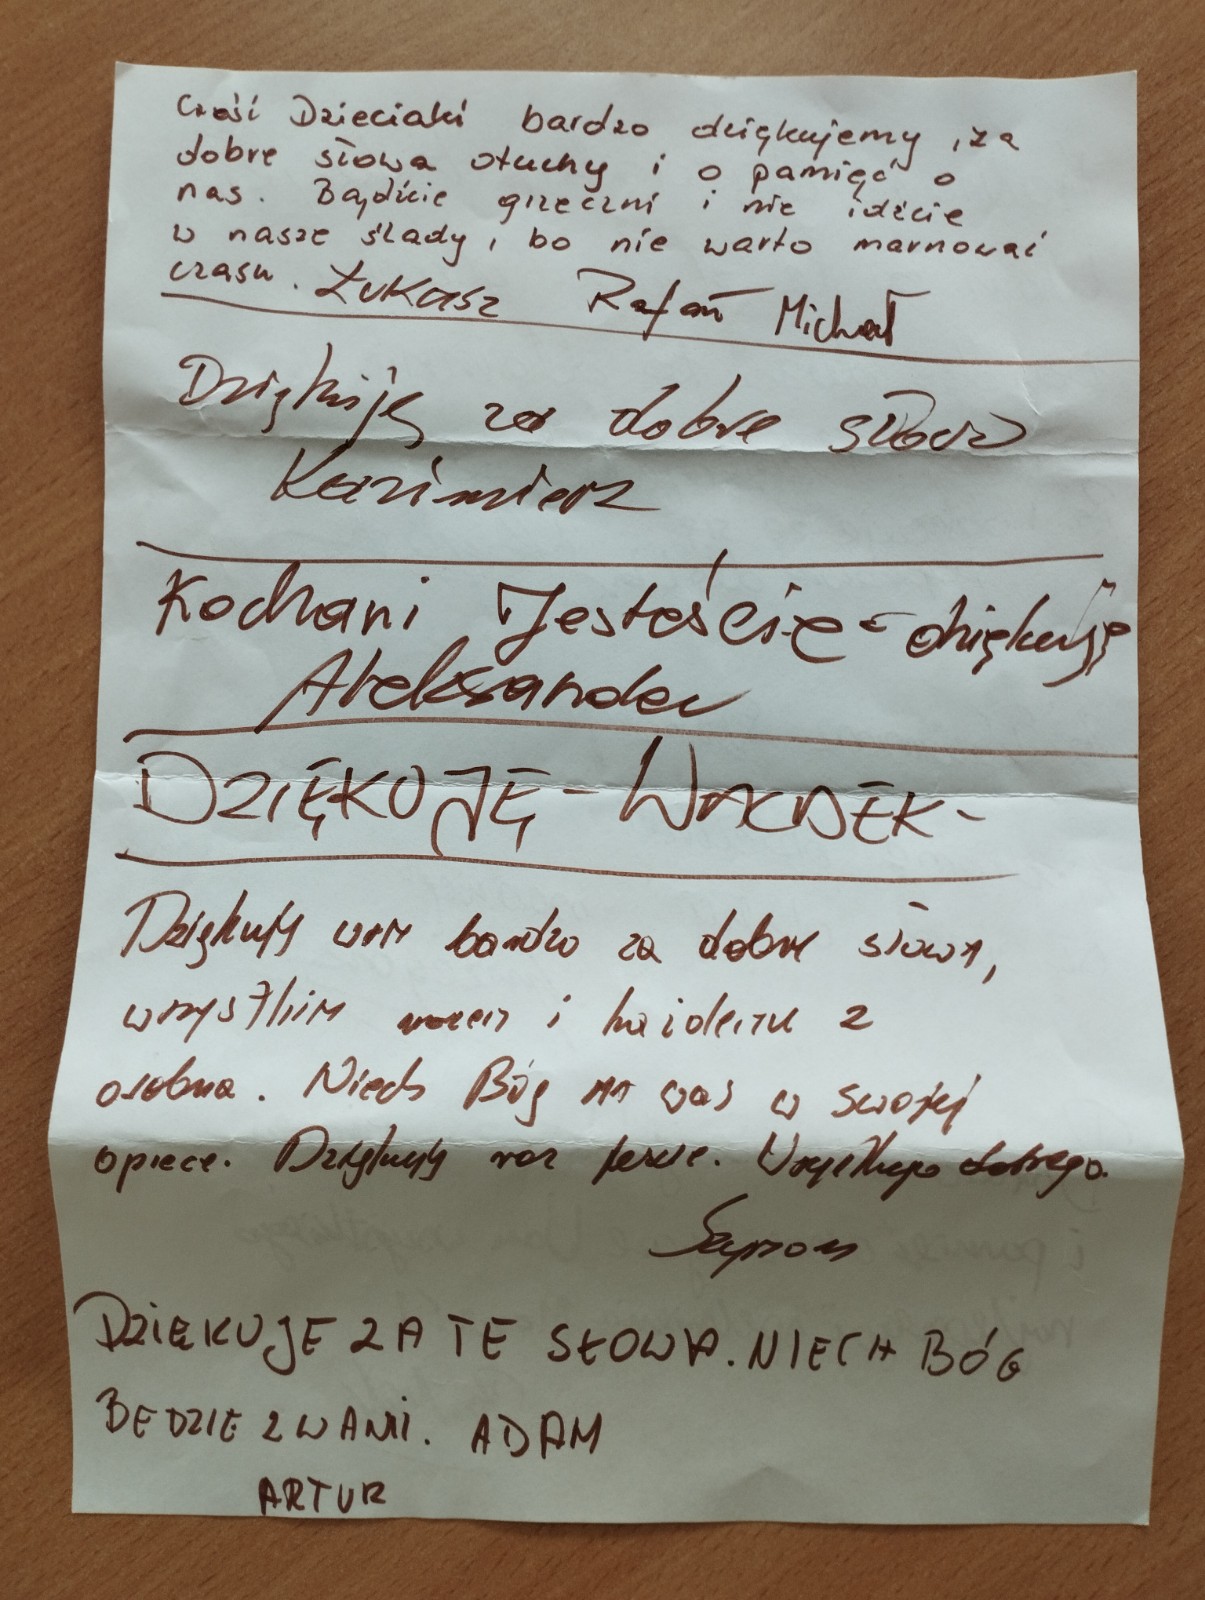 Cześć Dzieciaki bardzo dziękujemy , za
dobre słowa otuchy i o pamięć o
nas. Bądźcie grzeczni i nie idźcie
w nasze ślady, bo nie warto marnować
czasu. Łukasz Rafał Michał
Dziękuję za dobre słowa
Kazimierz
Kochani Jesteście - dziękuję
Aleksander
DZIĘKUJĘ - WŁADEK -
Dziękuję wam bardzo za dobre słowa,
wszystkim razem i każdemu z
osobna. Niech Bóg ma was w swojej
opiece. Dziękuję raz jeszcze. Wszystkiego dobrego.
Szymon
DZIĘKUJE ZA TE SŁOWA. NIECH BÓG
BEDZIE Z WAMI. ADAM
ARTUR